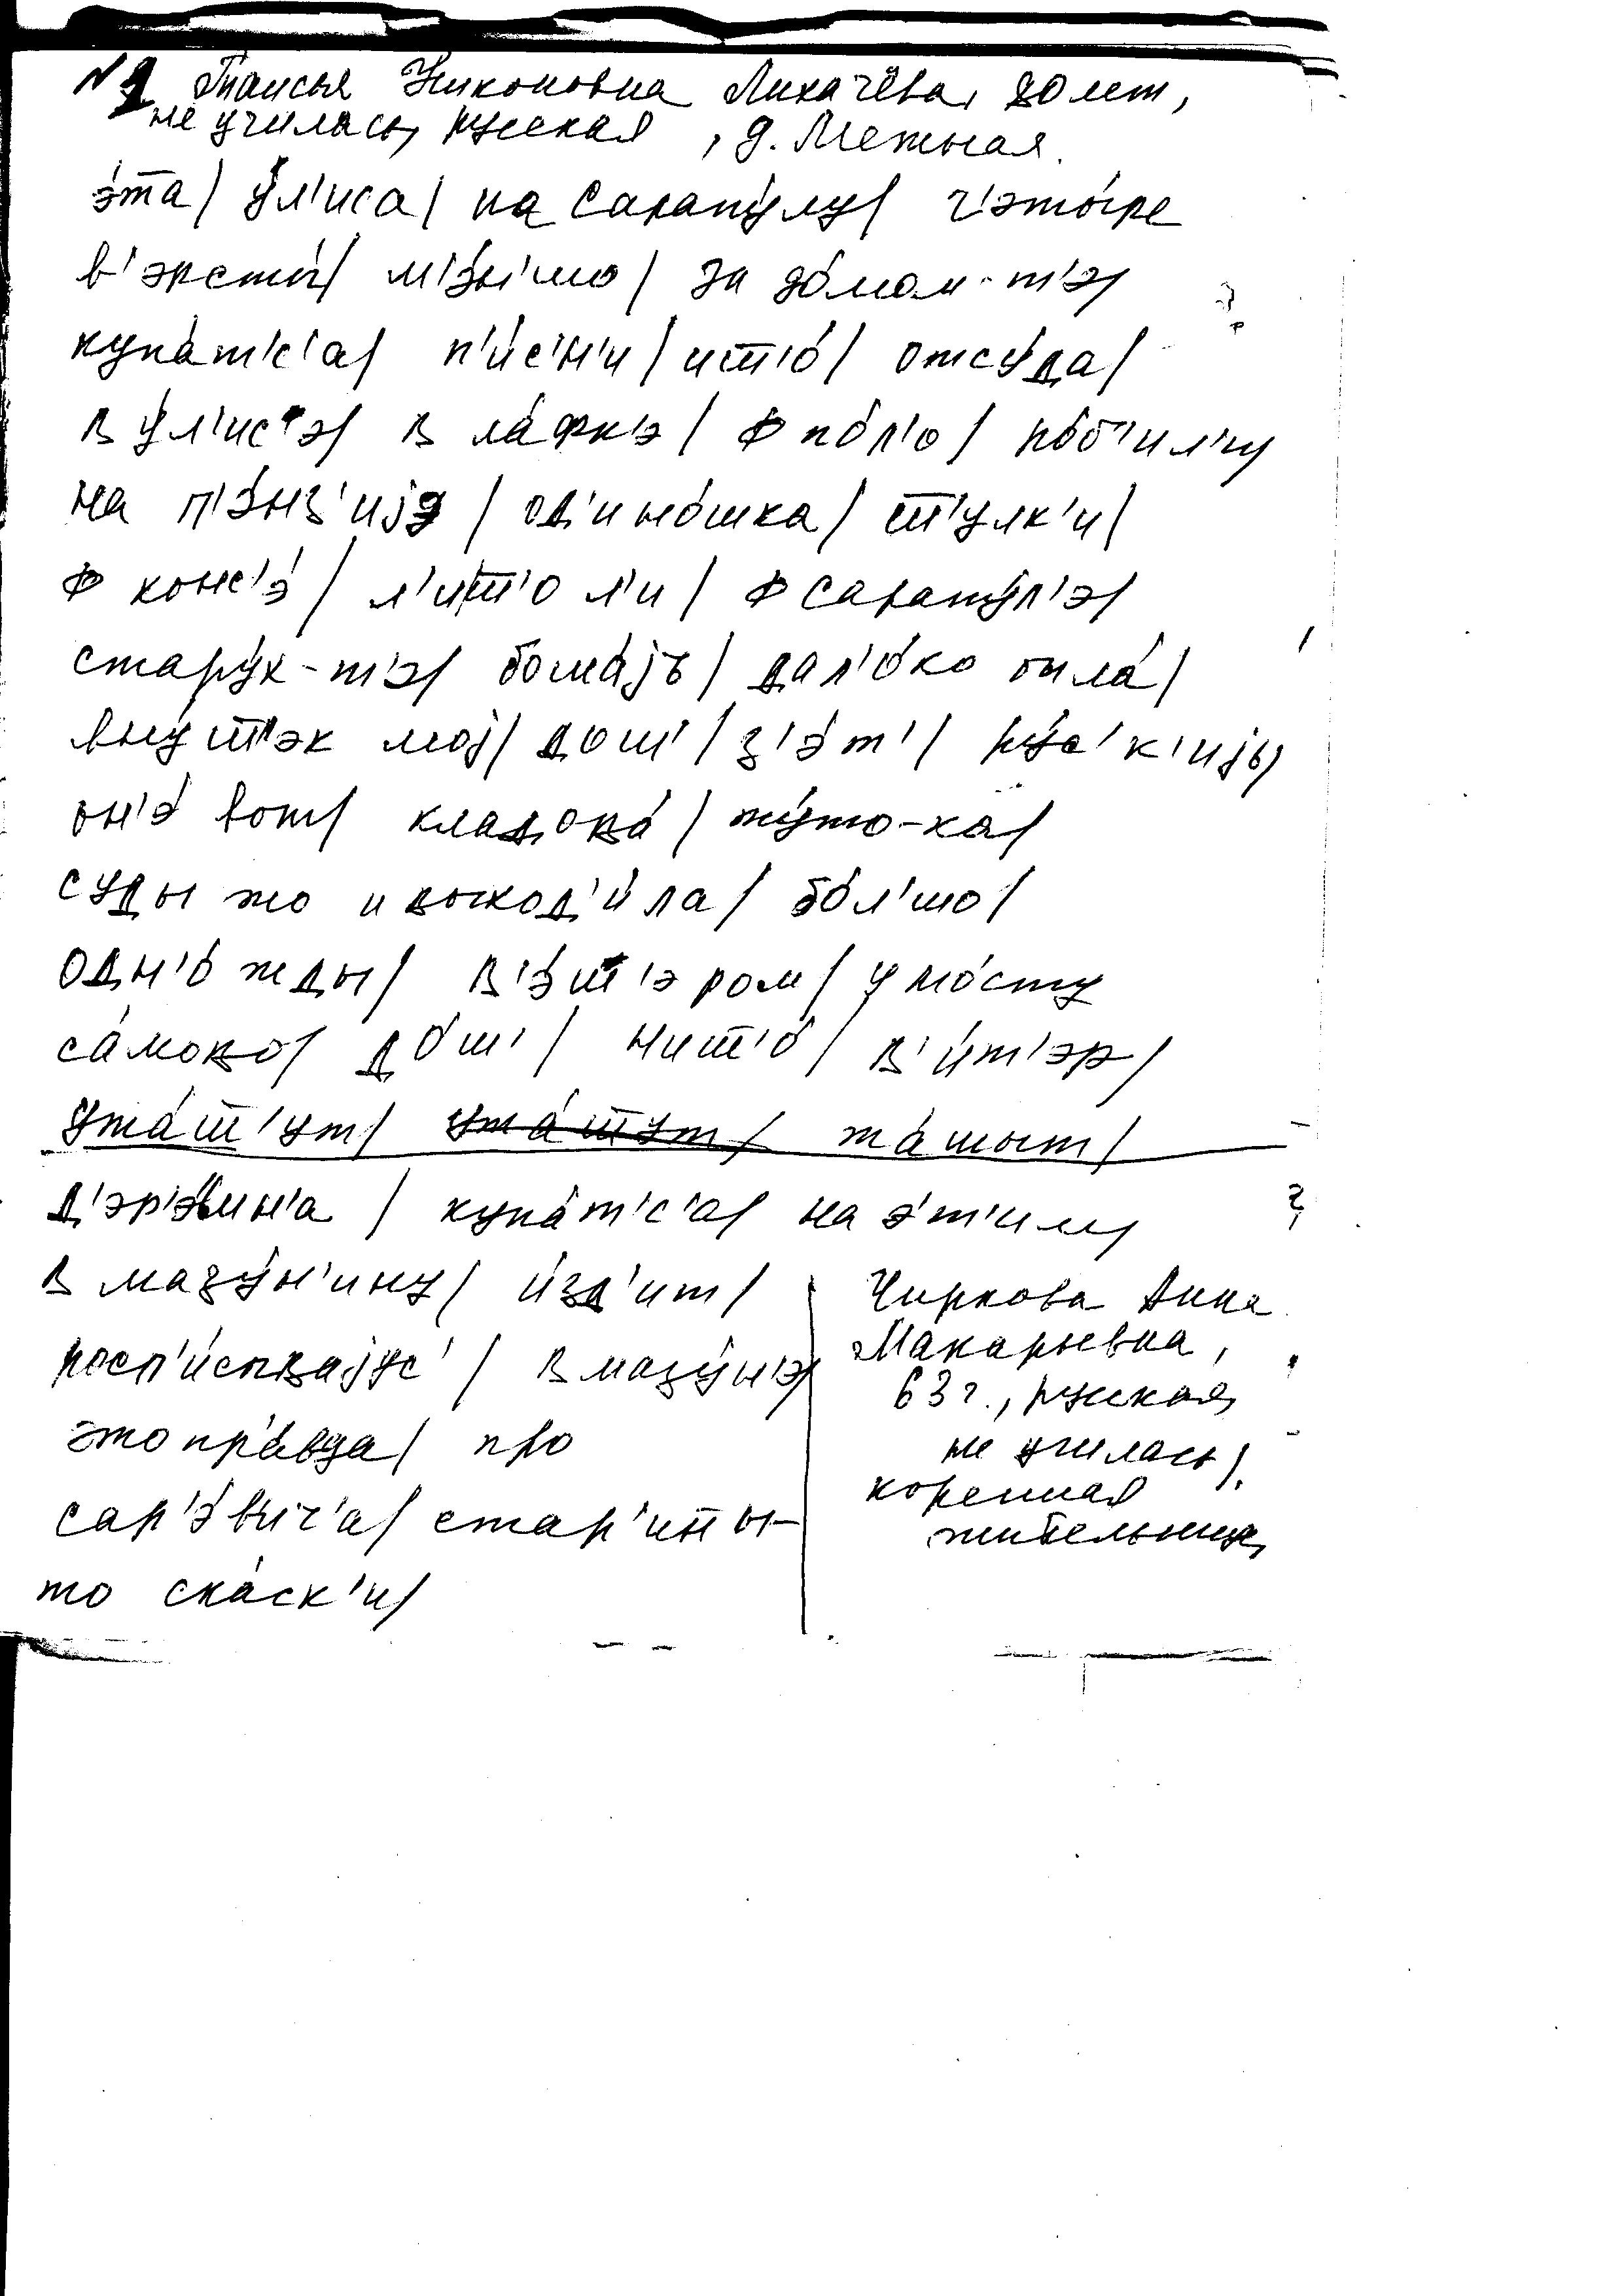 № 2 Таисья Никоновна Лихачёва, 80 лет,
не училась, русская, д. Межная.
э́та/ у́л'иса/ на сарапу́лу/ ч'эты́ре
в'эрсты́/ м'э́н'шо/ за до́мом-т'э/
купа́т'с'а/ п'и́с'н'и/ ишт'о́/ отсу́да/
в у́л'ис'э/ в ла́фк'э/ ф по́л'о/ робт'ил'ку
на п'э́нз'ијэ/ од'ино́шка/ ш'улк'и/
ф конс'э́/ л'ишт'о л'и/ ф сарапу́л'э/
стару́х-т'э/ бома́јъ/ дал'о́ко была́/
внуш'эк мој/ дош'/ з'э́т'/ ру́с'к'ијы/
он'э́ вот/ кладова́/ ту́то-ка/
суды жо и выход'и́ла/ бо́л'шо/
одн'о́жды/ в'э́ш'эром/ у мо́сту
са́мово/ до́ш'/ ништ'о́/ в'и́т'эр/
ута́ш'ут/ та́шыт/
д'эр'э́вин'а/ купа́т'с'а/ на э́т'им/
в мазу́н'ину/ и́зд'ит/
росп'и́сывајус'/ в мазу́н'э/
это пра́вда/ про
сар'э́вич'а/ стар'ины-
то ска́ск'и/
Чиркова Анна
Макарьевна,
63 г., русская,
не училась,
коренная
жительница